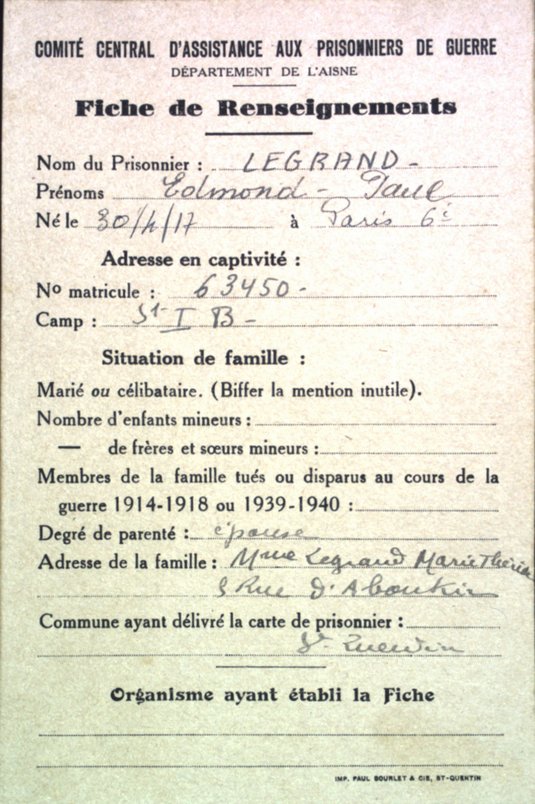 COMITÉ CENTRAL D'ASSISTANCE AUX PRISONNIERS DE GUERRE
DÉPARTEMENT DE L'AISNE
Fiche de Renseignements
Nom du Prisonnier : LEGRAND -
Prénoms Edmond - Paul
Né le 30/4/17 à Paris 6è
Adresse en captivité :
No matricule : 63450 -
Camp : St I B -
Situation de famille :
Marié ou célibataire. (Biffer la mention inutile).
Nombre d'enfants mineurs :
— de frères et sœurs mineurs :
Membres de la famille tués ou disparus au cours de la
guerre 1914-1918 ou 1939-1940 :
Degré de parenté : épouse
Adresse de la famille : Mme Legrand Marie
Rue d'Aboukir
Commune ayant délivré la carte de prisonnier :
St. Quentin
Organisme ayant établi la Fiche
IMP. PAUL BOURLET & CIE, ST-QUENTIN